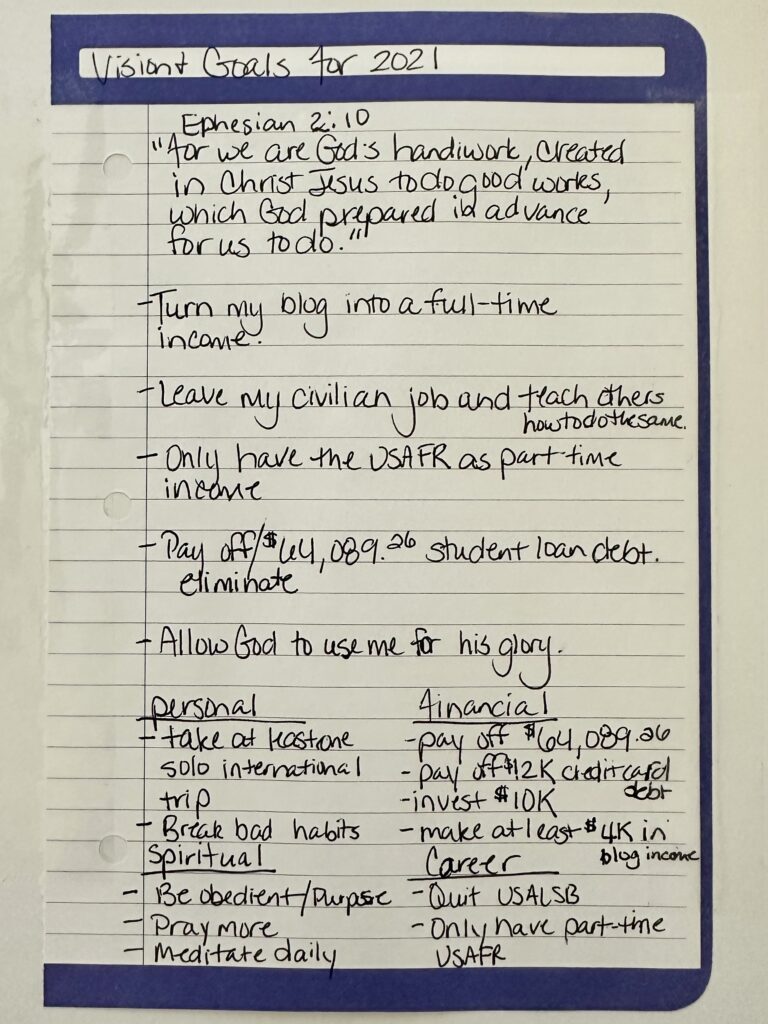 Vision + Goals for 2021
Ephesian 2:10
"For we are God's handiwork, created
in Christ Jesus to do good works,
which God prepared in advance
for us to do."
- Turn my blog into a full-time
income.
- Leave my civilian job and teach others
how to do the same.
- Only have the USAFR as part-time
income
- Pay off/$64,089.26 student loan debt.
eliminate
- Allow God to use me for his glory.
personal
- take at least one
solo international
trip
- Break bad habits
financial
- pay off $64,089.26
- pay off $12K credit card
debt
- invest $10K
- make at least $4K in
blog income
Spiritual
- Be obedient/Purpose
- Pray more
- Meditate daily
Career
- Quit USALSB
- Only have part-time
USAFR